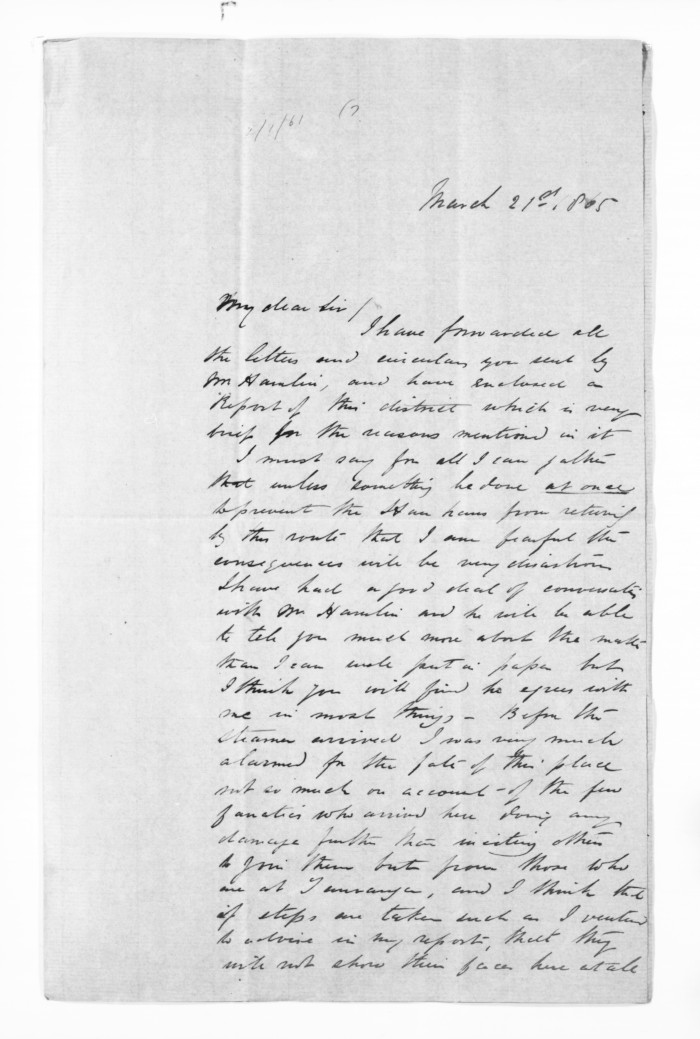 March 21st, 1865
My dear Sir/
I have forwarded all
the letters and circulars you sent by
Mr Hamlin, and have enclosed a
Report of this district which is very
brief for the reasons mentioned in it
I must say for all I can gather
that unless something be done at once
to prevent the Hau haus from returning
by this route that I am fearful the
consequences will be very disastrous
I have had a good deal of conversation
with Mr Hamlin and he will be able
to tell you much more about the matter
than I can well put in paper but
I think you will find he agrees with
me in most things - Before the
steamer arrived I was very much
alarmed for the fate of this place
not so much on account of the few
fanatics who arrived here doing any
damage further than inciting others
to join them but from those who
are at Tauranga, and I think that
if steps are taken such as I venture
to advise in my report, that they
will not show their faces here at all